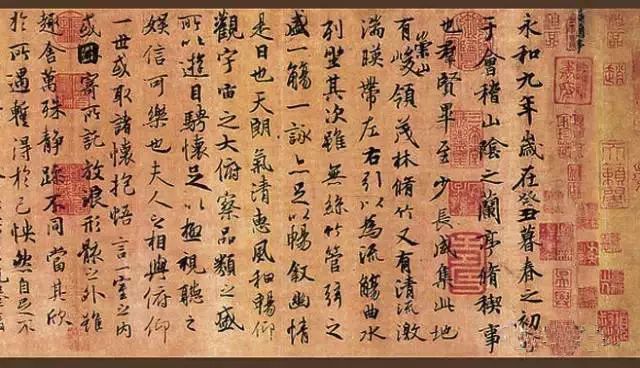 永和九年歲在癸丑暮春之初
于會稽山陰之蘭亭脩稧事
也羣賢畢至少長咸集此地
有崇山峻領茂林脩竹又有清流激
湍暎帶左右引以為流觴曲水
列坐其次雖無絲竹管弦之
盛一觴一詠亦足以暢敘幽情
是日也天朗氣清惠風和暢仰
觀宇宙之大俯察品類之盛
所以遊目騁懷足以極視聽之
娛信可樂也夫人之相與俯仰
一世或取諸懷抱悟言一室之內
或因寄所託放浪形骸之外雖
趣舍萬殊静躁不同當其欣
於所遇蹔得於己怏然自足不